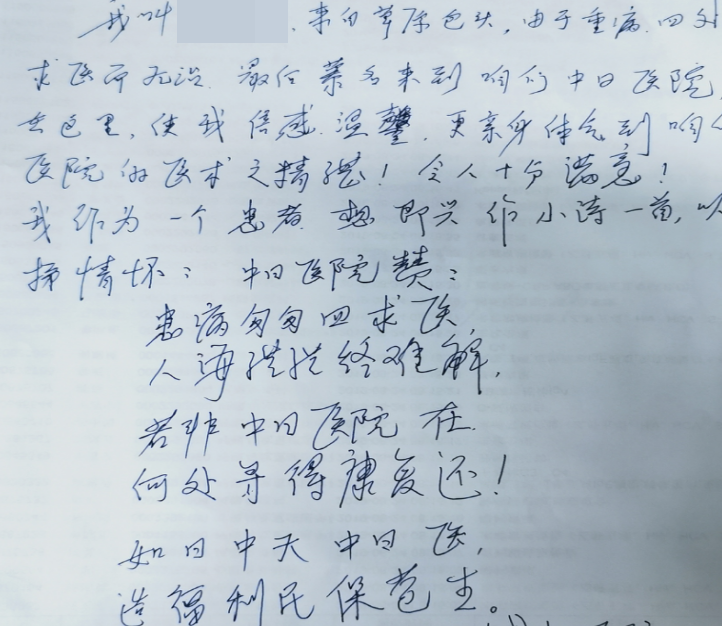 我叫 来自草原包头,由于重病.四外
求医而无治.最后慕名来到咱们中日医院,
去这里,使我倍感温馨.更亲身体会到咱们
医院的医术之精湛!令人十分满意!
我作为一个患者.想即兴作小诗一首,以
抒情怀:中日医院赞:
患病匆匆四求医,
人海茫茫终难解,
若非中日医院在.
何处寻得康复还!
如日中天中日医,
造福利民保苍生。